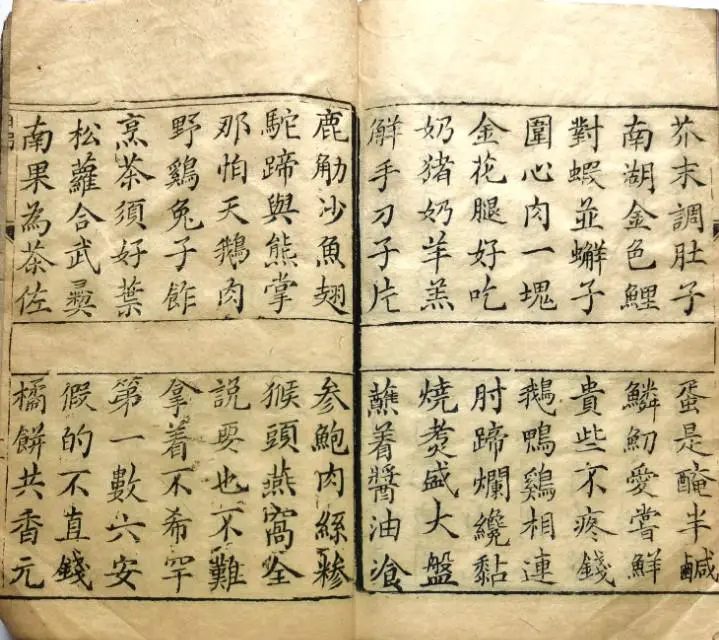 芥末調肚子
蛋是醃半鹹
南湖金色鯉
鱗魛愛嘗鮮
對蝦並蠏子
貴些不疼錢
圍心肉一塊
鵝鴨鷄相連
金花腿好吃
肘蹄爛纔黏
奶猪奶羊羔
燒煑盛大盤
觧手刀子片
蘸着醬油飡
鹿觔沙魚翅
参鮑肉絲糝
駝蹄與熊掌
猴頭燕窩全
那怕天鵝肉
説要也不難
野鷄兔子飵
拿着不希罕
烹茶須好葉
第一數六安
松蘿合武彛
假的不直錢
南果為茶佐
橘餅共香元